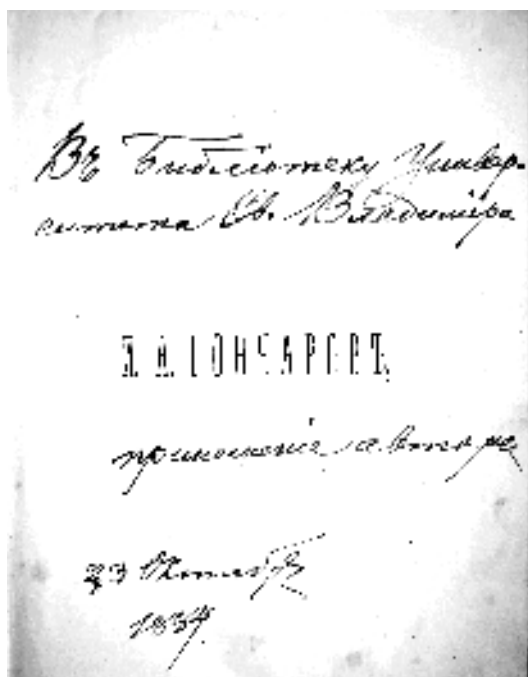 Въ Библіотеку Универ-
ситета Св. Владиміра
И. А. ГОНЧАРОВЪ
приношеніе автора
23 Октября